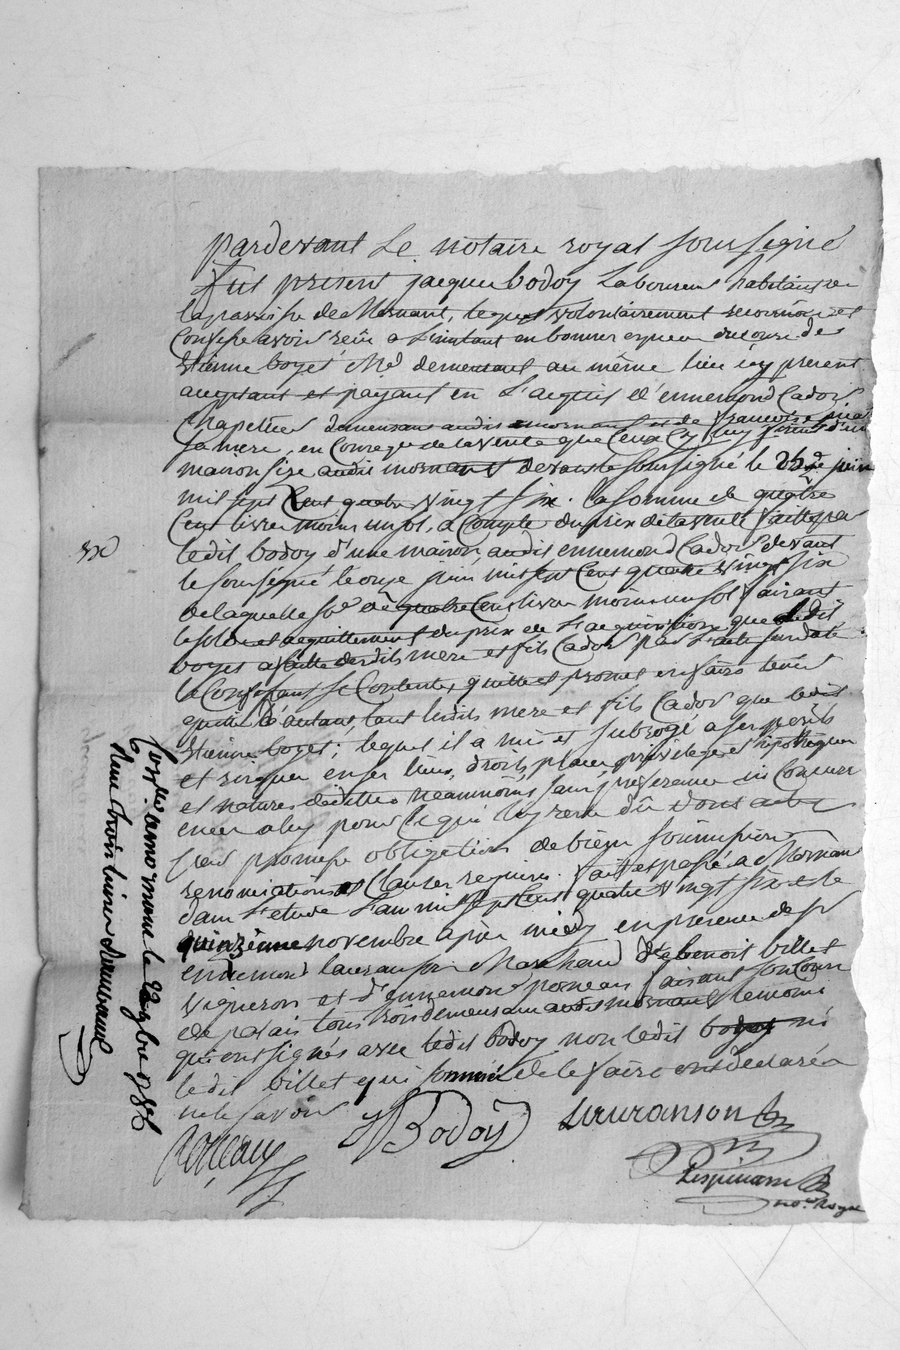 pardevant Le notaire royal soussigné
fut present jacque bodoy Laboureur habitant en
la parroisse de Mornant, lequel volontairement reconnoit et
Confesse avoir reçu a L'instant en bonnes especes du cours de
Etienne boyet Md demeurant au même lieu icy present
acceptant et payant en L'acquit d'ennemond Cador
Chapellier demeurant audit mornant et de françoise
sa mere, en Conséq de la vente que Ceux Cy luy d'une
maison size audit mornant devant le soussigné le juin
mil sept Cent quatre vingt six. la somme de quatre
Cent livres moins un sol, a Compte du prix de la vente faitte par
ledit bodoy d'une maison, audit ennemond Cador devant
le soussigné le onze juin mil sept Cent quatre vingt six
de laquelle de quatre Cens livres moins un sol faisant
le solde et acquittement du prix de L'acquisition que ledit
boyet a faitte desdits mere et fils Cador par L'acte surdaté
le Confessant se Contente, quitte et promet en faire tenir
quitte d'autant tant lesdits mere et fils Cador que ledit
Etienne boyet; lequel il a mis et subrogé a ses perils
et risques en ses lieu, droits, place, privilege et hipotheque
et nature de dettes neanmoins sans preference ni Concurr
ence a luy pour Ce qui luy reste dû dont acte
fait promesse obligations de biens soumissions
renonciations et Clauses requises. fait et passé a Mornant
dans L'etude L'an mil sept Cent quatre vingt six et le
quinzieme novembre apres midy en presence de sr
ennemond lauranson Marchand de benoit billet
vigneron et d'ennemond poncau faisant son Cours
de palais tous trois demeurant audit mornant temoins
qui ont signés avec ledit bodoy non ledit boyet ni
ledit billet qui sommés de le faire ont declarés
ne le savoir
Bodoy Lauranson
Lespinasse
not. Royal
a mornant le 22 9bre 1786